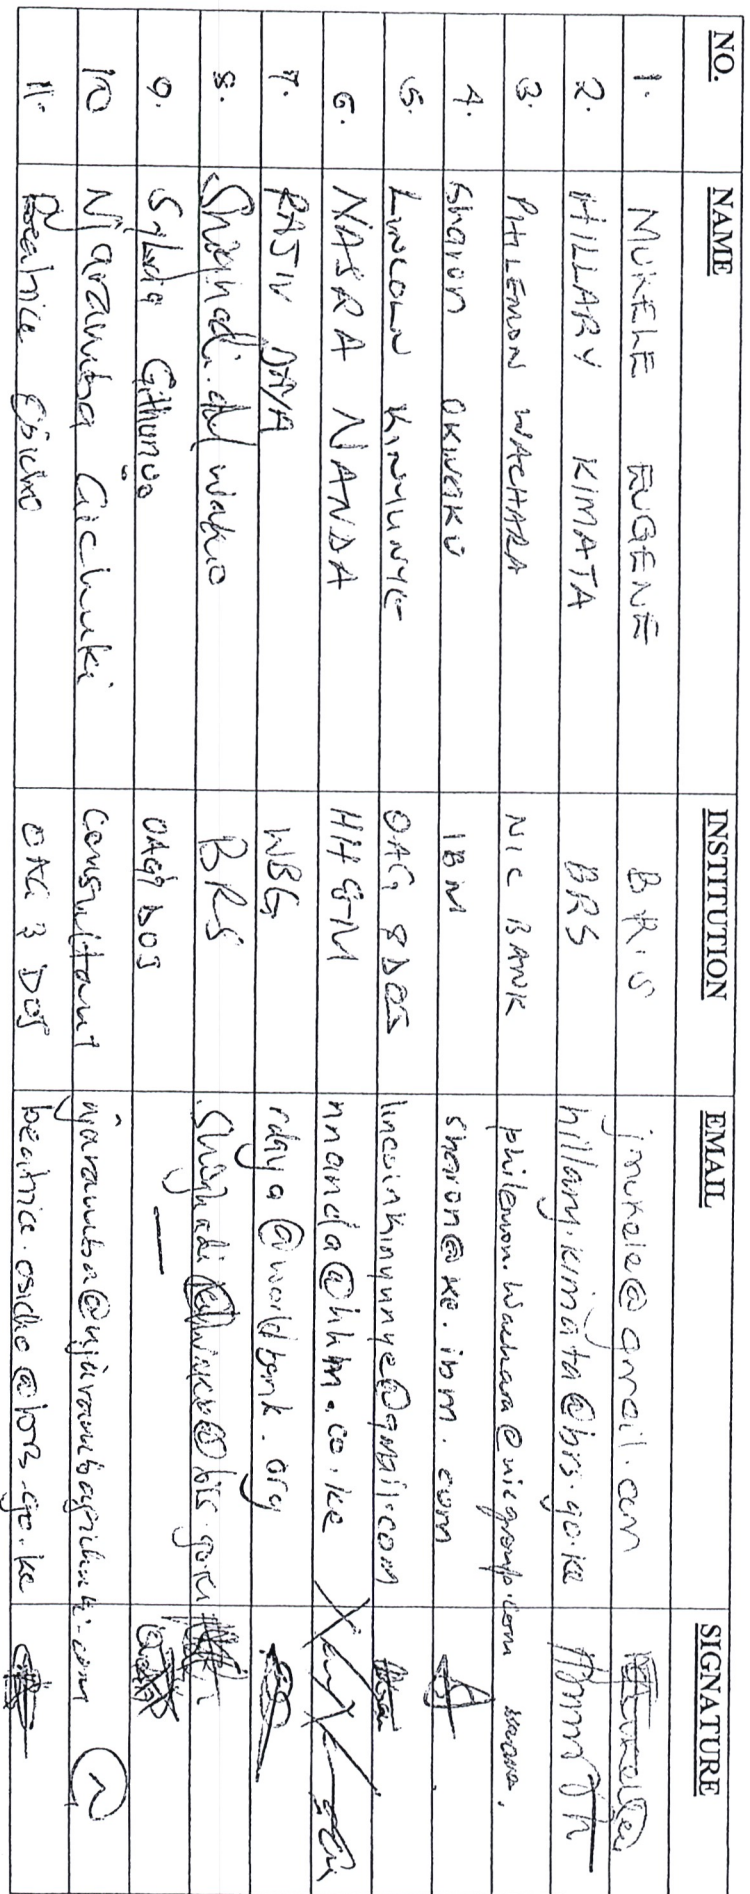 NO. NAME INSTITUTION EMAIL SIGNATURE
1. MUKELE EUGENE B.R.S jmukele@gmail.com
2. HILLARY KIMATA BRS hillary.kimata@brs.go.ke
3. PHILEMON WACHARA NIC BANK philemon.wachara@nicgroup.com
4. Sharon OKWAKO IBM sharon@ke.ibm.com
5. LINCOLN KINYUNYE OAG & DOJ lincolnkinyunye@gmail.com
6. NASRA NANDA HH &M nnanda@hhm.co.ke
7. RAJIV DAYA WBG rdaya@worldbank.org
8. Wako BRS
9. Sylvia OAG & DOJ —
10 Njaramba Gichuki Consultant njaramba@njarambagichuki.com
11. Beatrice Osicho OAG & DOJ beatrice.osicho@